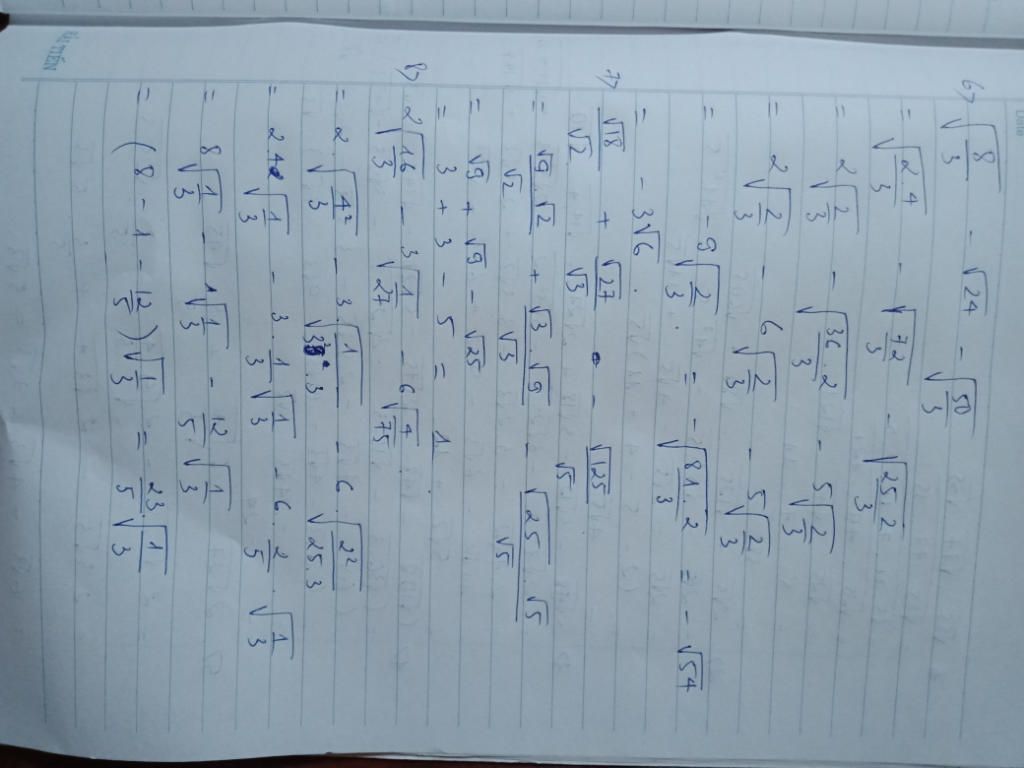 Date
6) √(8/3) - √24 - √(50/3)
= √(2.4/3) - √(72/3) - √(25.2/3)
= 2√(2/3) - √(36.2/3) - 5√(2/3)
= 2√(2/3) - 6√(2/3) - 5√(2/3)
= -9√(2/3) = -√(81.2/3) = -√54
= -3√6.
7) √18/√2 + √27/√3 - √125/√5
= √9.√2/√2 + √3.√9/√3 - √25.√5/√5
= √9 + √9 - √25
= 3 + 3 - 5 = 1
8) 2√(16/3) - 3√(1/27) - 6√(4/75)
= 2.√(4²/3) - 3.√(1/3².3) - 6.√(2²/25.3)
= 2.4√(1/3) - 3.1/3√(1/3) - 6.2/5.√(1/3)
= 8√(1/3) - 1√(1/3) - 12/5√(1/3)
= (8 - 1 - 12/5)√(1/3) = 23/5.√(1/3)
HẢI TIẾN